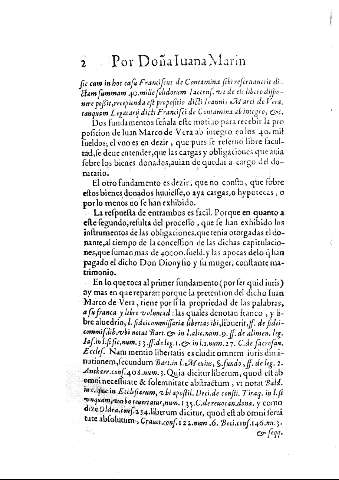 2 Por Doña Iuana Marin
sic cum in hoc casu Franciscus de Contamina sibi reseruauerit di-
ctam summam 40. mille solidorum Iaccens. vt de eis liberè dispo-
nere possit, recipienda est propositio dicti Ioannis Marci de Vera,
tanquam Legatarij dicti Francisci de Contamina ab integro, &c.
Dos fundamentos señala este motiuo para recebir la pro
posicion de Iuan Marco de Vera ab integro en los 40. mil
sueldos; el vno es en dezir, que pues se referuò libre facul-
tad, se deue entender, que las cargas y obligaciones que auia
sobre los bienes donados, auian de quedar a cargo del do-
natario.
El otro fundamento es dezir, que no consta, que sobre
estos bienes donados huuiesse, o aya cargas, o hypotecas, o
por lo menos no se han exhibido.
La respuesta de entrambos es facil. Porque en quanto a
este segundo, resulta del processo, que se han exhibido los
instrumentos de las obligaciones, que tenia otorgadas el do-
nante, al tiempo de la concession de las dichas capitulacio-
nes, que suman mas de 40000. sueld. y las apocas de lo q̃ han
pagado el dicho Don Dionysio y su muger, constante ma-
trimonio.
En lo que toca al primer fundamento (por ser quid iuris)
ay mas en que reparar: porque la pretension del dicho Iuan
Marco de Vera, tiene por si la propriedad de las palabras,
a su franca y libre voluntad: las quales denotan franco, y li-
bre aluedrio, l. fideicommissaria libertas ibi, si voluerit, ff. de fidei-
commiss. lib. vbi notat Bart. & in l. abi. num. 9. ff. de alimen. leg.
Ias. in l. si sic, num. 13. ff. de leg. 1. & in l. a num. 27. C. de sacrosan.
Eccles. Nam mentio libertatis excludit omnem iuris dina-
tionem, secundum Bart. in l. Meuius, §. fundo, ff. de leg. 2.
Ancharr. conf. 408. num. 3. Quia dicitur liberum, quod est ab
omni necessitate & solemnitate abstractum, vt notat Bald.
in c. que in Ecclesiarum, vbi apostil. Deci. de constit. Tiraq. in l. si
vnquam, verbo reuertatur, num. 135. C. de reuocan. dona. y como
dize Oldra. conf. 234. liberum dicitur, quod est ab omni serui
tute absolutum, Crauet. conf. 122. num. 6. Deci. conf. 146. nu. 3.
& seqq.